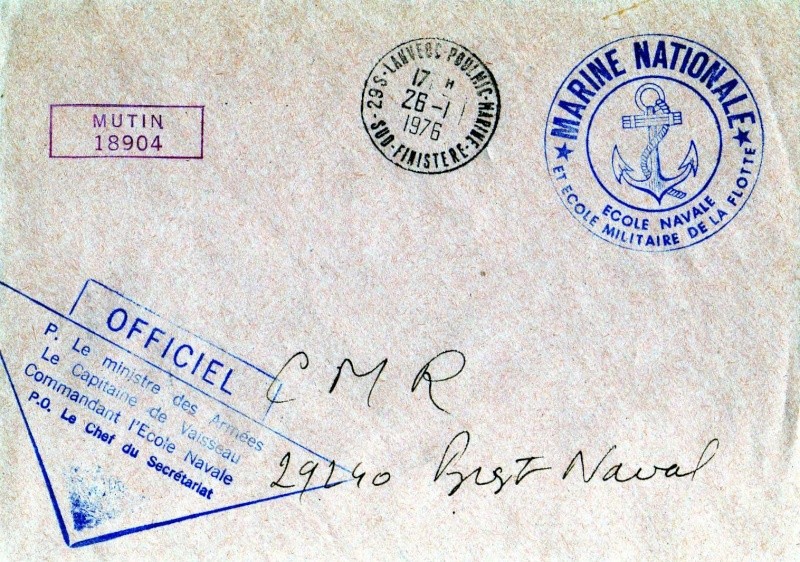 MUTIN
18904
29 S-LANVEOC-POULMIC-MARINE
17 H
26-1
1976
SUD-FINISTERE
MARINE NATIONALE
ECOLE NAVALE
ET ECOLE MILITAIRE DE LA FLOTTE
OFFICIEL
P. Le ministre des Armées
Le Capitaine de Vaisseau
Commandant l'Ecole Navale
P.O. Le Chef du Secrétariat
C M R
29240 Brest Naval